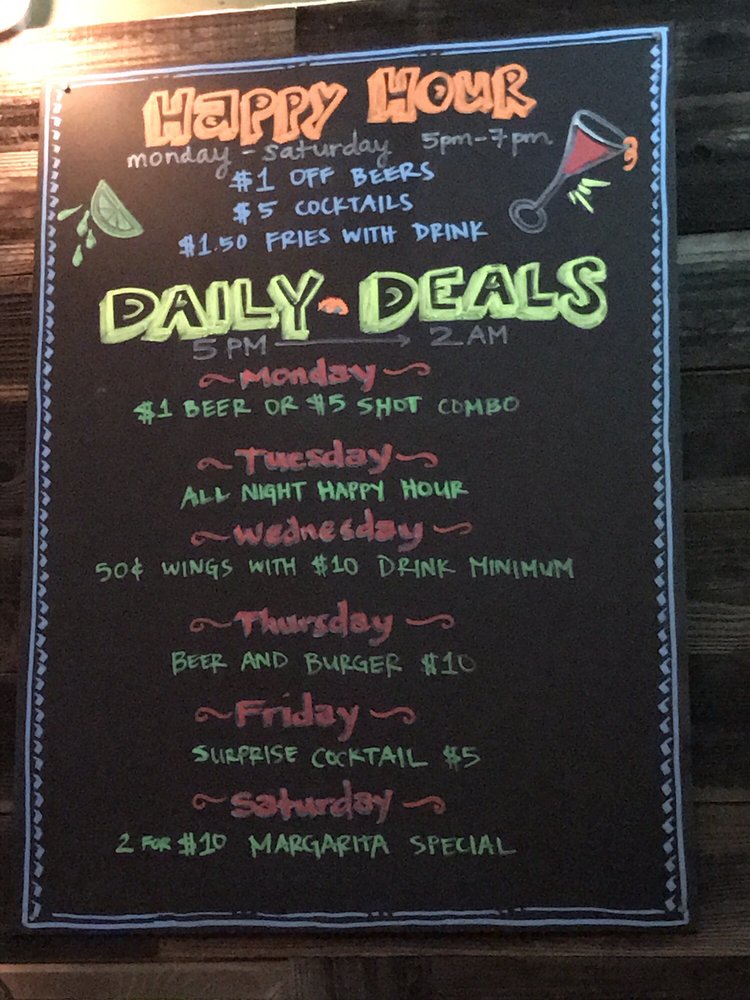 Happy Hour
monday - saturday 5pm-7pm
$1 OFF BEERS
$5 COCKTAILS
$1.50 FRIES WITH DRINK
DAILY - DEALS
5 PM → 2 AM
~ Monday ~
$1 BEER OR $5 SHOT COMBO
~ Tuesday ~
ALL NIGHT HAPPY HOUR
~ Wednesday ~
50¢ WINGS WITH $10 DRINK MINIMUM
~ Thursday ~
BEER AND BURGER $10
~ Friday ~
SURPRISE COCKTAIL $5
~ Saturday ~
2 FOR $10 MARGARITA SPECIAL